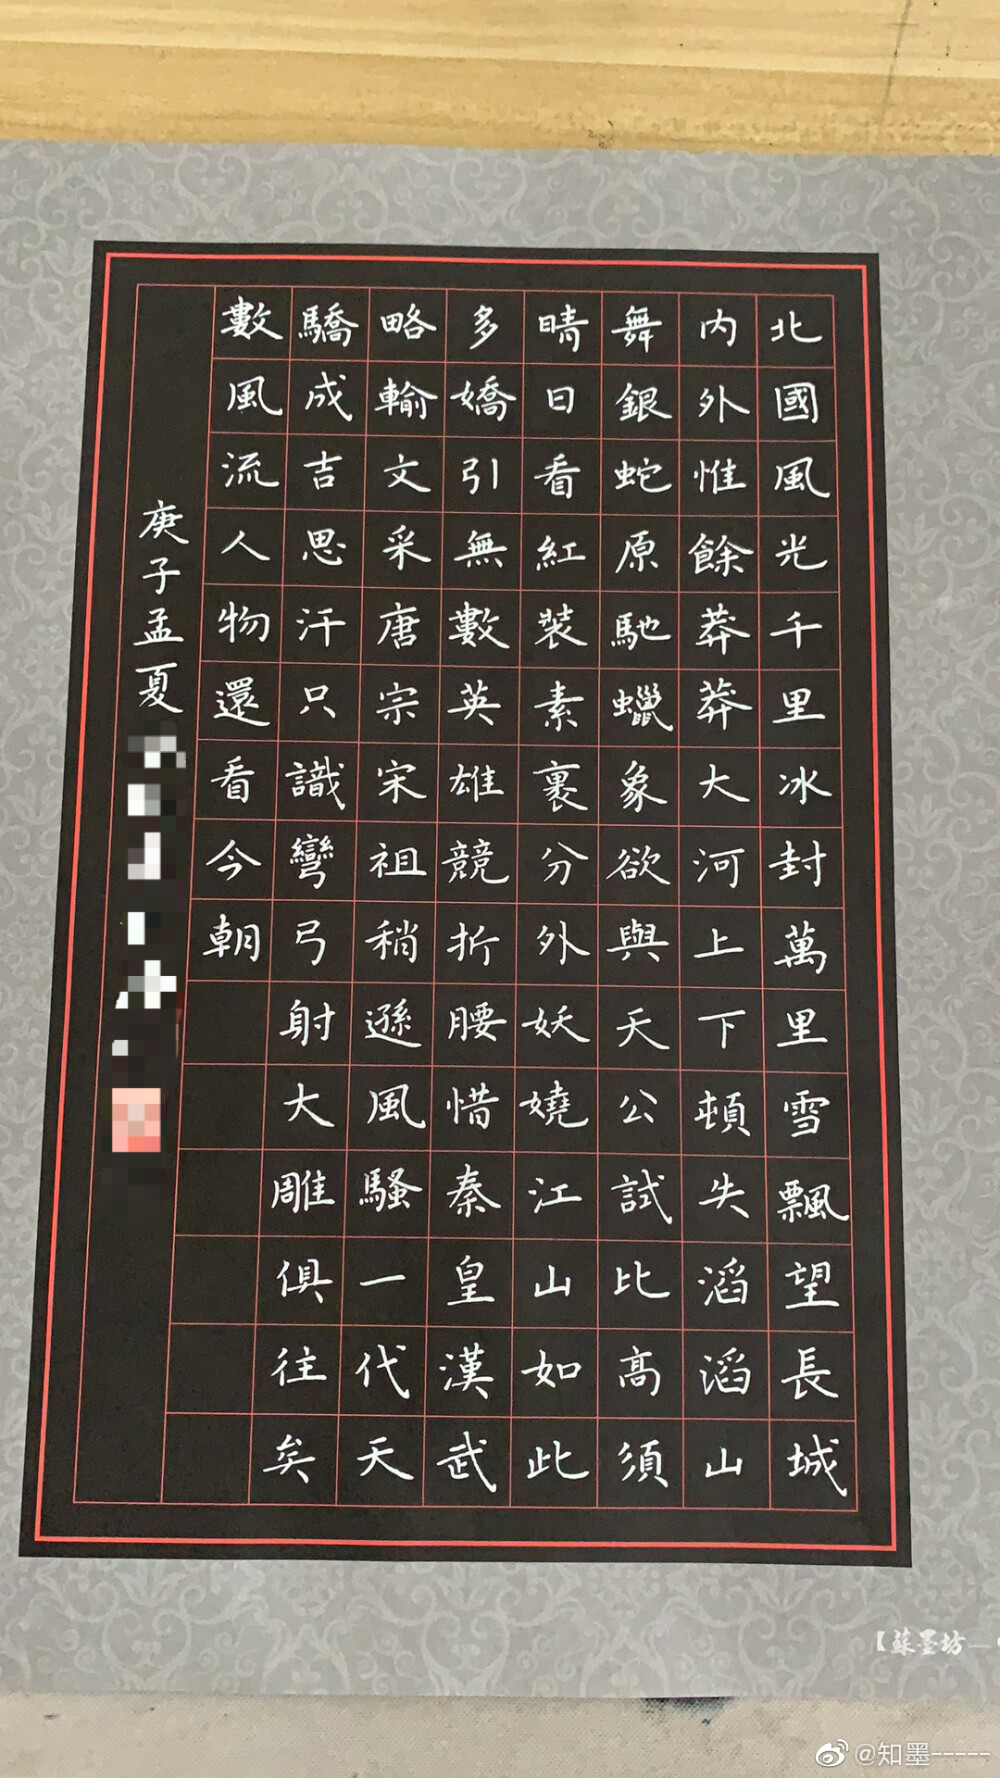 北國風光千里冰封萬里雪飄望長城
內外惟餘莽莽大河上下頓失滔滔山
舞銀蛇原馳蠟象欲與天公試比高須
晴日看紅裝素裹分外妖嬈江山如此
多嬌引無數英雄競折腰惜秦皇漢武
略輸文采唐宗宋祖稍遜風騷一代天
驕成吉思汗只識彎弓射大雕俱往矣
數風流人物還看今朝
庚子孟夏
【蘇墨坊
@知墨-----